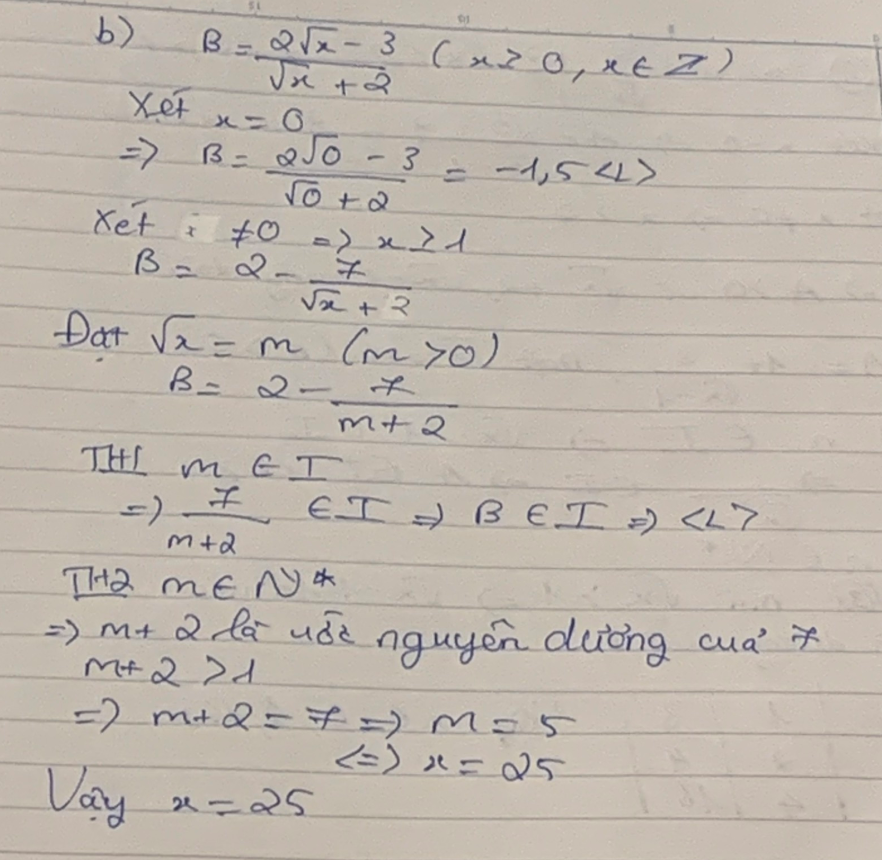 b) B = (2√x - 3)/(√x + 2) ( x ≥ 0, x ∈ Z )
Xét x = 0
=> B = (2√0 - 3)/(√0 + 2) = -1,5 <L>
Xét ≠0 => x ≥ 1
B = 2 - 7/(√x + 2)
Đặt √x = m (m > 0)
B = 2 - 7/(m + 2)
TH1 m ∈ I
=> 7/(m+2) ∈ I => B ∈ I => <L>
TH2 m ∈ N*
=> m + 2 là ước nguyên dương của 7
m + 2 > 1
=> m + 2 = 7 => m = 5
<=> x = 25
Vậy x = 25